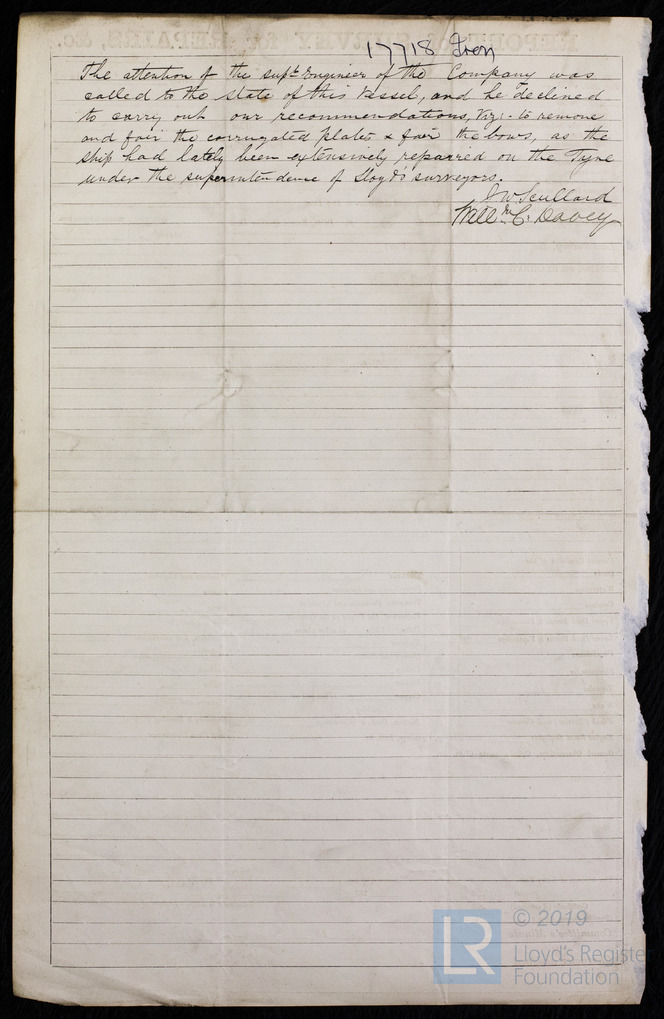 17718 Iron
The attention of the supt Engineer of the Company was
called to the state of this vessel, and he declined
to carry out our recommendations, viz:- to remove
and fair the corrugated plates & fair the bows, as the
ship had lately been extensively repaired on the Tyne
under the superintendence of Lloyd's surveyors.
J W Scullard
Willm C. Davey
© 2019
LR
Lloyd's Register
Foundation